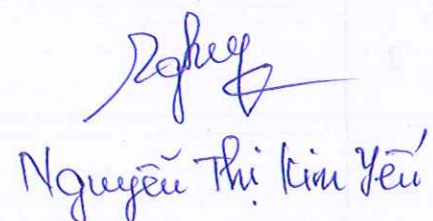 Nguyễn Thị Kim Yến